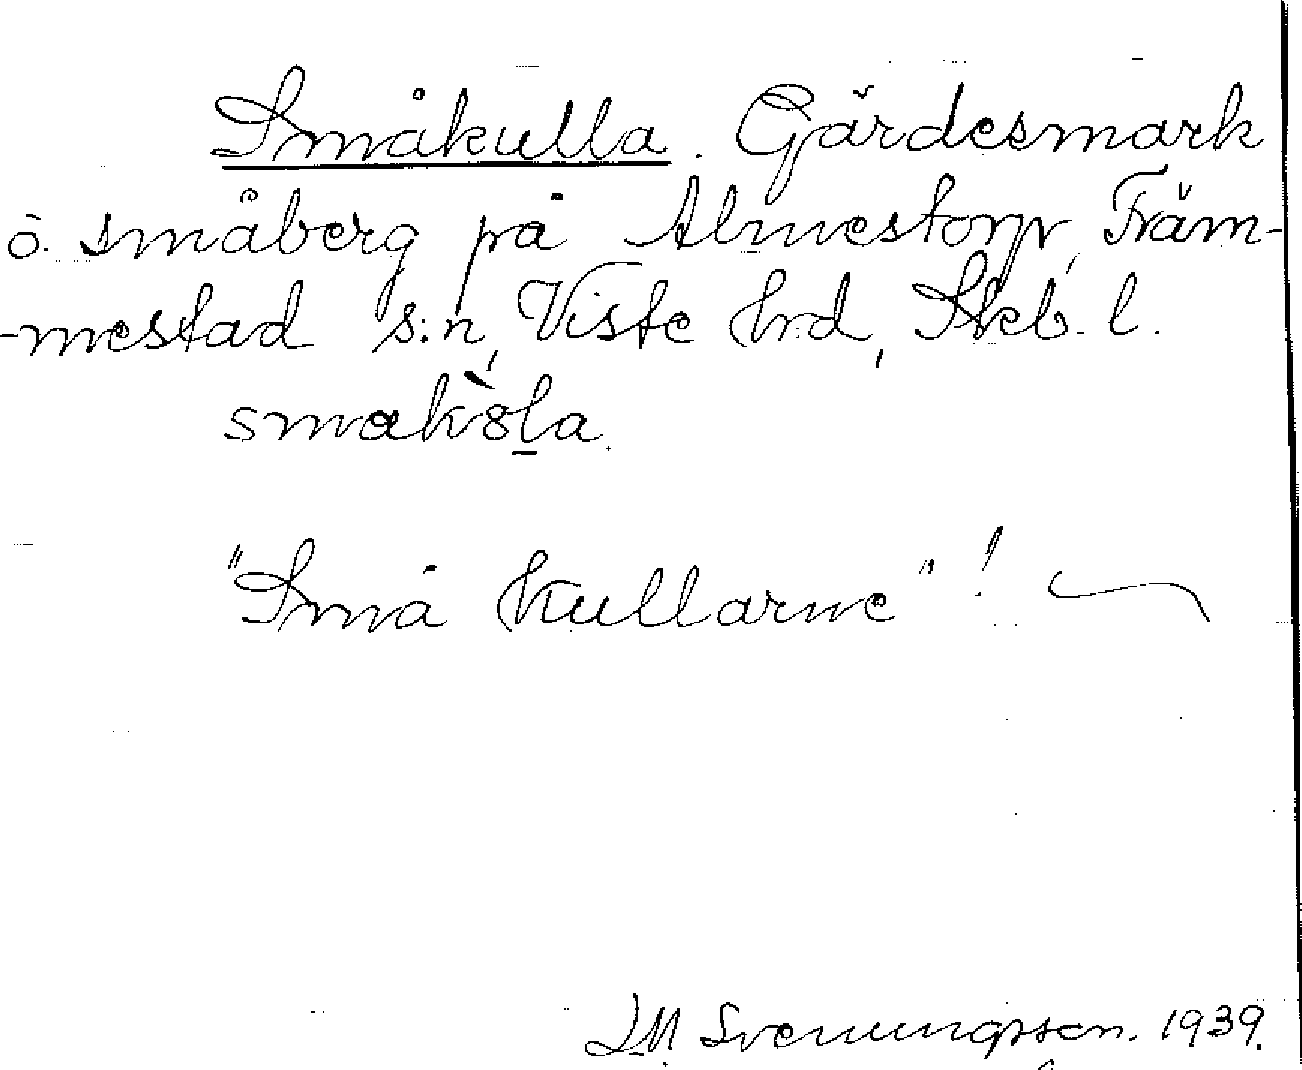 Småkulla. Gärdesmark
o. småberg på Almestorp, Främ-
-mestad s:n, Viste hrd, Skb. l.
smakȣla.
"Små kullarne"!
LM Svenungsson. 1939.